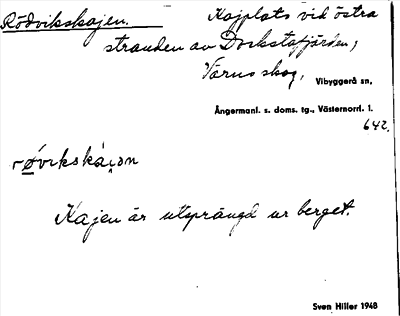 Rödvikskajen. Kajplats vid östra
stranden av Dockstafjärden,
Värns skog, Vibyggerå sn.
Ångermanl. s. doms. tg., Västernorrl. l.
642.
Kajen är utsprängd ur berget.
Sven Hiller 1948